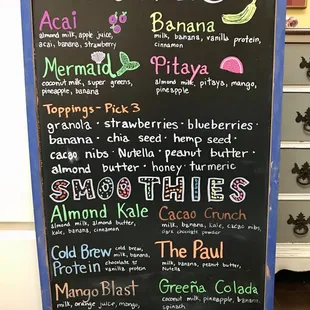 Acai
almond milk, apple juice,
acai, banana, strawberry
Banana
milk, banana, vanilla protein,
cinnamon
Mermaid
coconut milk, super greens,
pineapple, banana
Pitaya
almond milk, pitaya, mango,
pineapple
Toppings - Pick 3
granola · strawberries · blueberries ·
banana · chia seed · hemp seed ·
cacao nibs · Nutella · peanut butter ·
almond butter · honey · turmeric
SMOOTHIES
Almond Kale
almond milk, almond butter,
kale, banana, cinnamon
Cacao Crunch
milk, banana, kale, cacao nibs,
dark chocolate powder
Cold Brew
Protein
cold brew,
milk, banana,
chocolate or
vanilla protein
The Paul
milk, banana, peanut butter,
Nutella
Mango Blast
milk, orange juice, mango,
Greeña Colada
coconut milk, pineapple, banana,
spinach